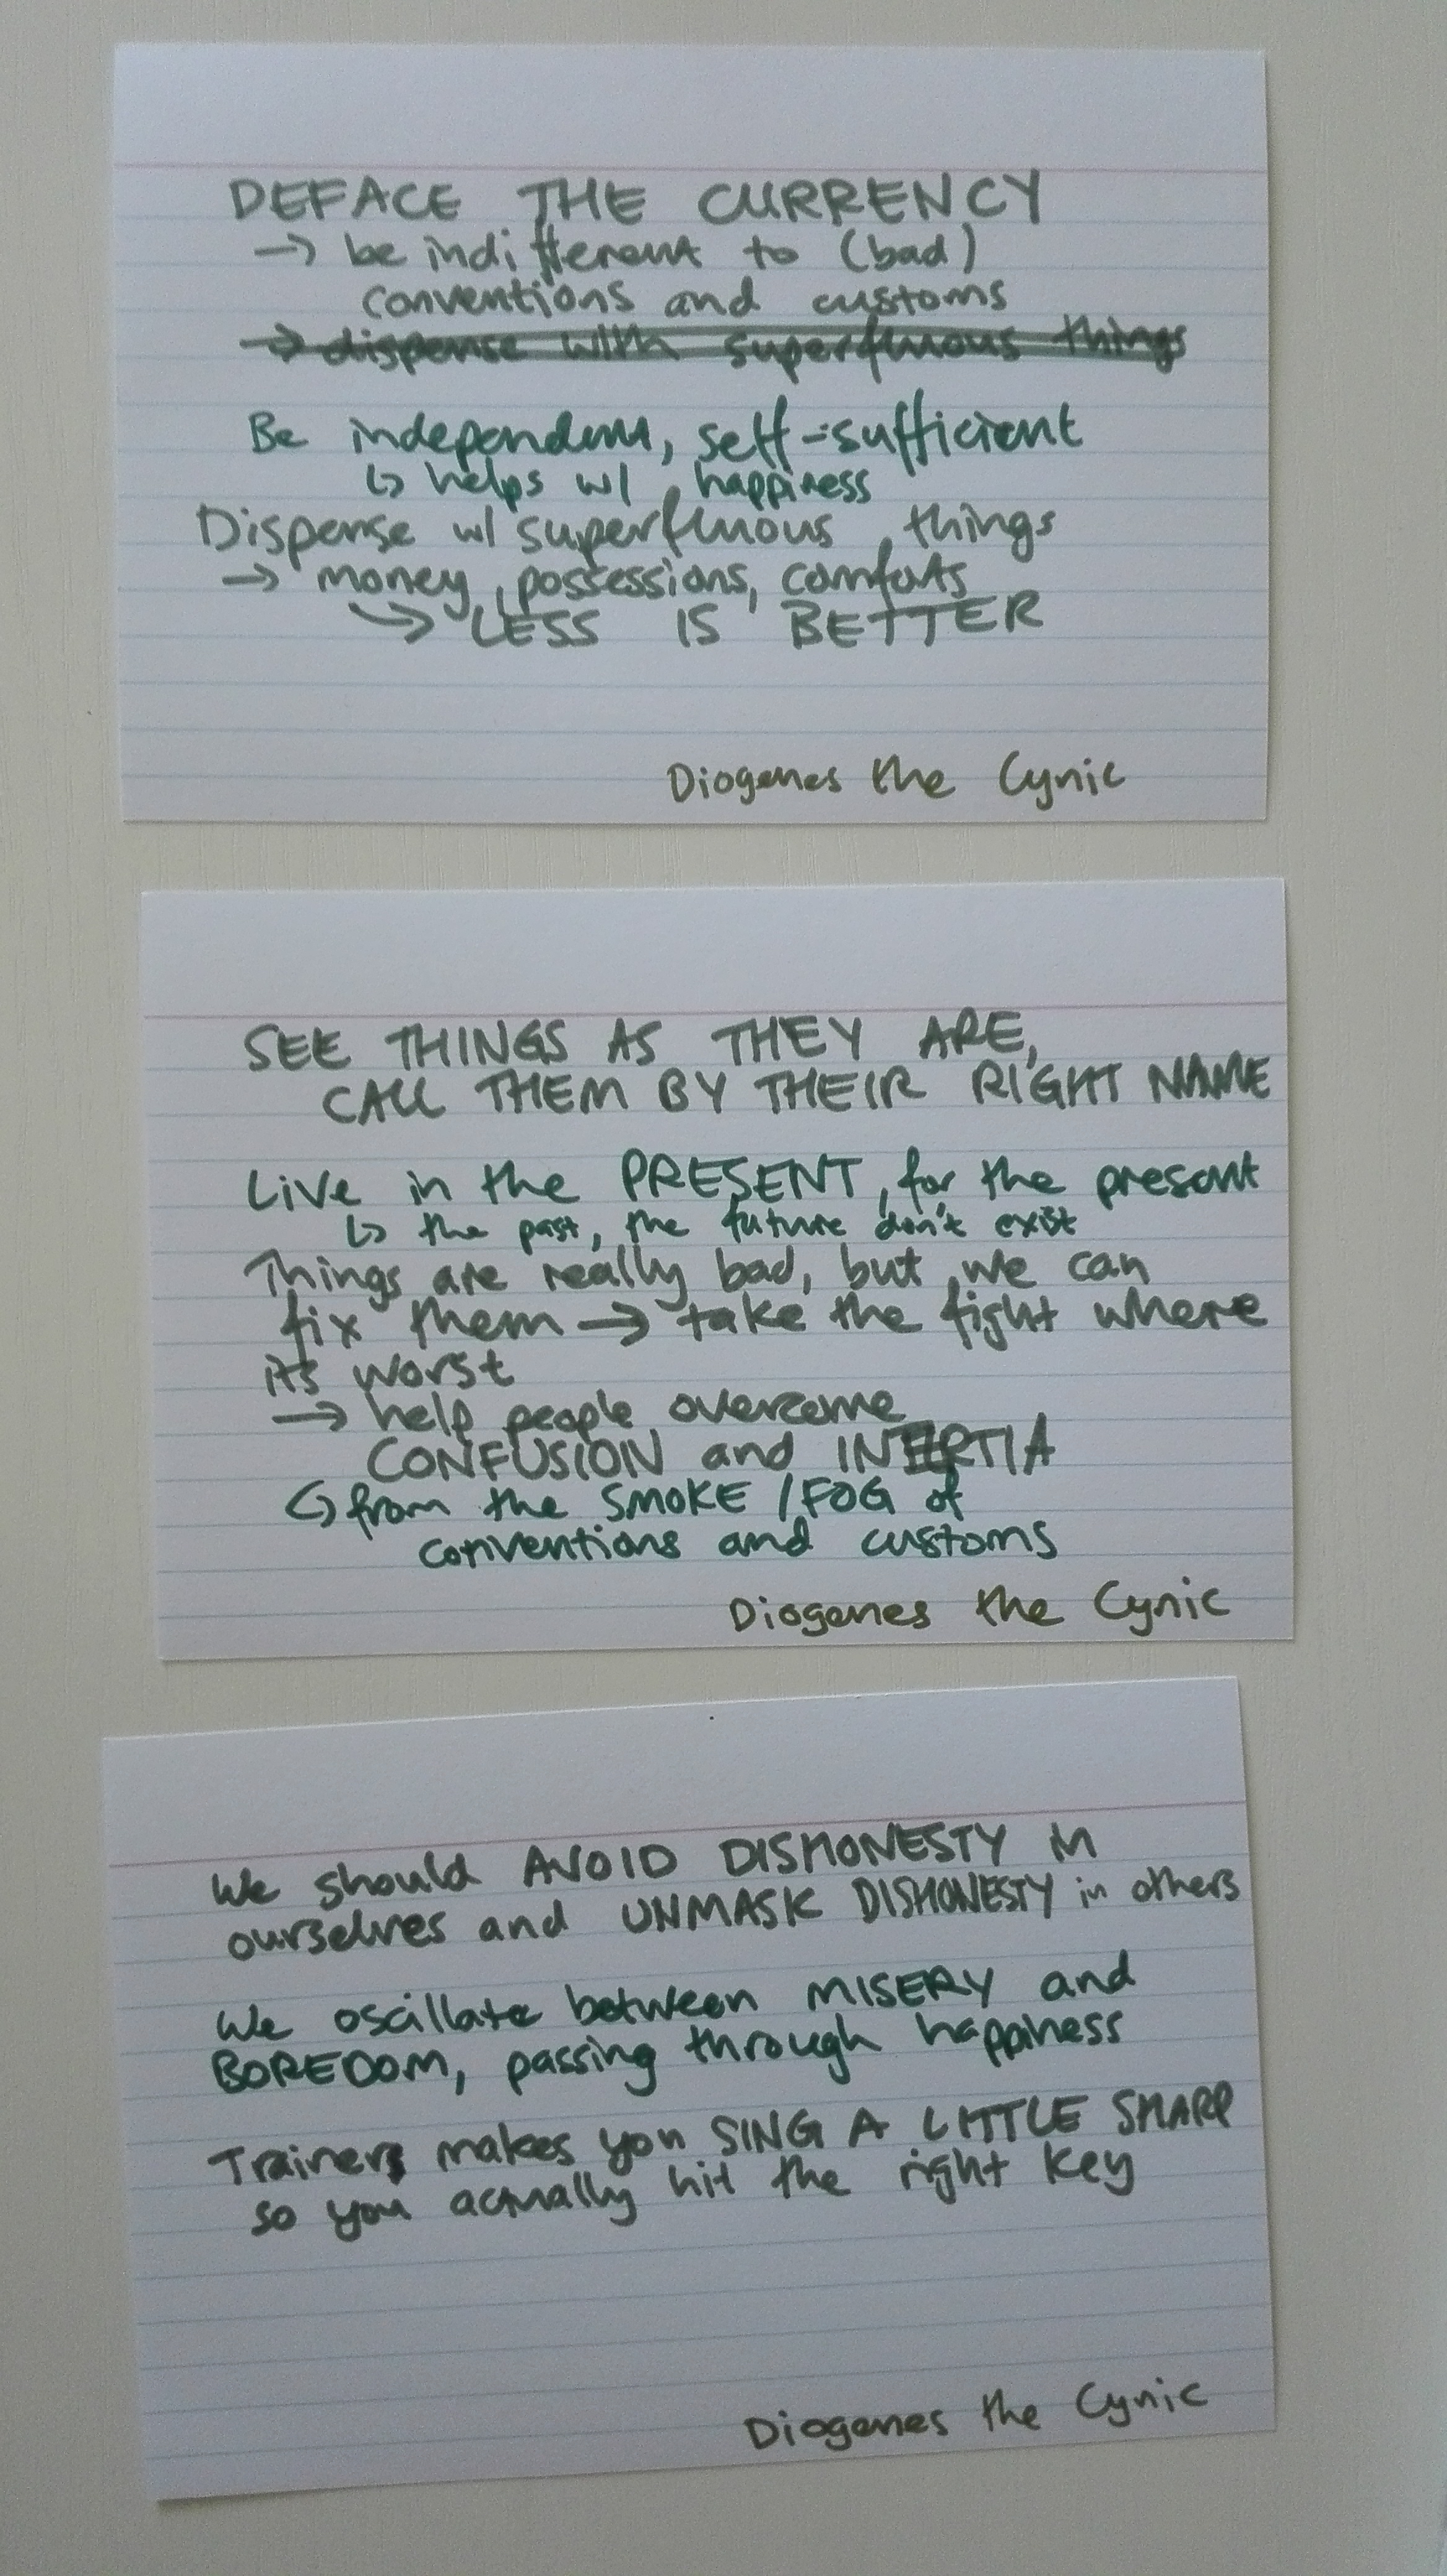 DEFACE THE CURRENCY
→ be indifferent to (bad)
conventions and customs
→ dispense with superfluous things
Be independent, self-sufficient
↳ helps w/ happiness
Dispense w/ superfluous things
→ money, possessions, comforts
→ LESS IS BETTER
Diogenes the Cynic
SEE THINGS AS THEY ARE,
CALL THEM BY THEIR RIGHT NAME
Live in the PRESENT, for the present
↳ the past, the future don't exist
Things are really bad, but we can
fix them → take the fight where
its worst
→ help people overcome
CONFUSION and INERTIA
↳ from the SMOKE / FOG of
conventions and customs
Diogenes the Cynic
We should AVOID DISHONESTY in
ourselves and UNMASK DISHONESTY in others
We oscillate between MISERY and
BOREDOM, passing through happiness
Trainers makes you SING A LITTLE SHARP
so you actually hit the right key
Diogenes the Cynic